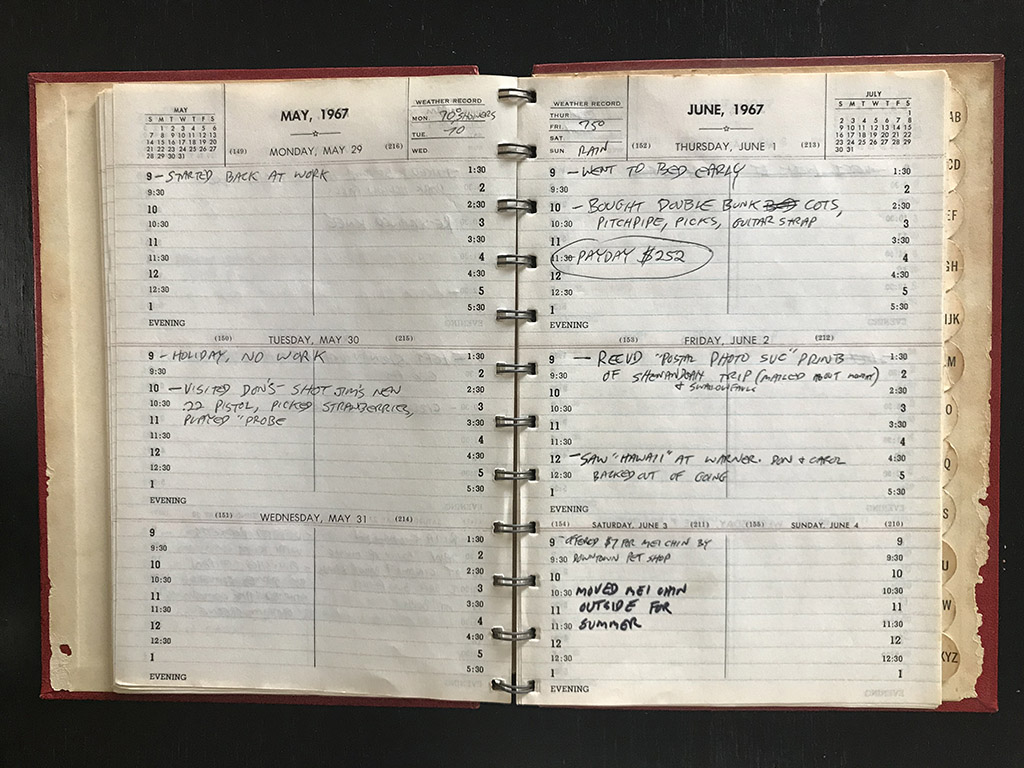 MAY
S M T W T F S
1 2 3 4 5 6
7 8 9 10 11 12 13
14 15 16 17 18 19 20
21 22 23 24 25 26 27
28 29 30 31
MAY, 1967
WEATHER RECORD
MON. 70° SHOWERS
TUE. 70
WED.
(149) MONDAY, MAY 29 (216)
9 - STARTED BACK AT WORK 1:30
9:30 2
10 2:30
10:30 3
11 3:30
11:30 4
12 4:30
12:30 5
1 5:30
EVENING
(150) TUESDAY, MAY 30 (215)
9 - HOLIDAY, NO WORK 1:30
9:30 2
10 - VISITED DON'S - SHOT JIM'S NEW 2:30
10:30 .22 PISTOL, PICKED STRAWBERRIES, 3
11 PLAYED "PROBE 3:30
11:30 4
12 4:30
12:30 5
1 5:30
EVENING
(151) WEDNESDAY, MAY 31 (214)
9 1:30
9:30 2
10 2:30
10:30 3
11 3:30
11:30 4
12 4:30
12:30 5
1 5:30
EVENING
WEATHER RECORD
THUR.
FRI. 75°
SAT.
SUN. RAIN
JUNE, 1967
JULY
S M T W T F S
1
2 3 4 5 6 7 8
9 10 11 12 13 14 15
16 17 18 19 20 21 22
23 24 25 26 27 28 29
30 31
(152) THURSDAY, JUNE 1 (213)
9 - WENT TO BED EARLY 1:30
9:30 2
10 - BOUGHT DOUBLE BUNK BED COTS, 2:30
10:30 PITCHPIPE, PICKS, GUITAR STRAP 3
11 3:30
11:30 - PAYDAY $252 4
12 4:30
12:30 5
1 5:30
EVENING
(153) FRIDAY, JUNE 2 (212)
9 - RECVD "POSTAL PHOTO SVC" PRINTS 1:30
9:30 OF SHENANDOAH TRIP (MAILED ABOUT) 2
10 & SWALLOW FALLS 2:30
10:30 3
11 3:30
11:30 4
12 - SAW "HAWAII" AT WARNER. DON & CAROL 4:30
12:30 BACKED OUT OF GOING 5
1 5:30
EVENING
(154) SATURDAY, JUNE 3 (211) (155) SUNDAY, JUNE 4 (210)
9 - OFFERED $7 FOR MEI CHIN BY 9
9:30 DOWNTOWN PET SHOP 9:30
10 10
10:30 MOVED MEI CHIN 10:30
11 OUTSIDE FOR 11
11:30 SUMMER 11:30
12 12
12:30 12:30
1 1
EVENING
AB
CD
EF
GH
IJK
M
O
Q
S
U
W
XYZ